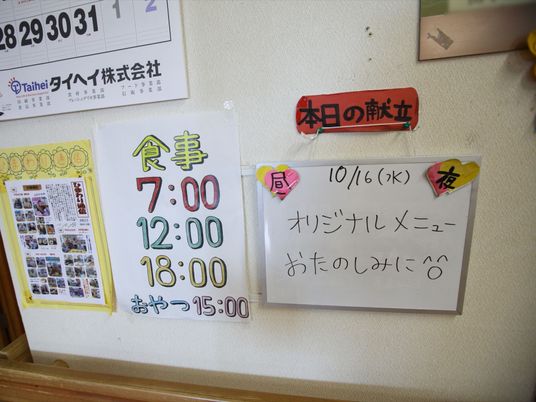 28 29 30 31
1
2
Taihei タイヘイ株式会社
食事
7:00
12:00
18:00
おやつ 15:00
本日の献立
昼
10/16(水)
夜
オリジナルメニュー
おたのしみに